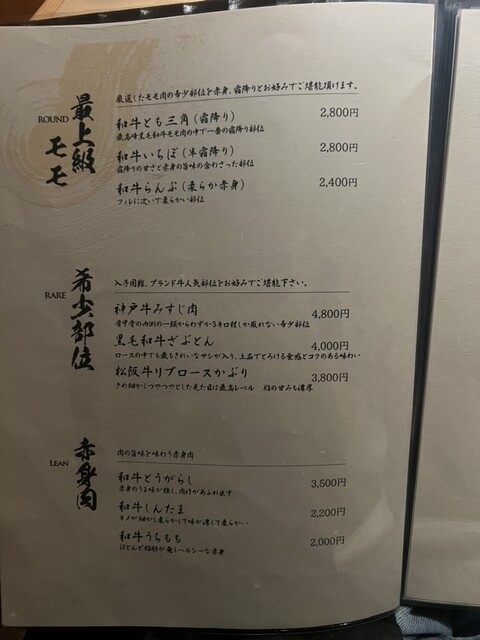 最上級モモ
ROUND
厳選したモモ肉の希少部位を赤身、霜降りとお好みでご堪能頂けます。
和牛とも三角(霜降り) 2,800円
最高峰黒毛和牛モモ肉の中で一番の霜降り部位
和牛いちぼ(半霜降り) 2,800円
霜降りの甘さと赤身の旨味の合わさった部位
和牛らんぷ(柔らか赤身) 2,400円
フィレに次いで柔らかい部位
希少部位
RARE
入手困難、ブランド牛人気部位をお好みでご堪能下さい。
神戸牛みすじ肉 4,800円
肩甲骨の内側の一頭からわずか3キロ程しか取れない希少部位
黒毛和牛ざぶとん 4,000円
ロースの中でも最もきれいなサシが入り、上品でとろける食感とコクのある味わい
松阪牛リブロースかぶり 3,800円
きめ細かしつやつやとした見た目は最高レベル 脂の甘みも濃厚
赤身肉
LEAN
肉の旨味を味わう赤身肉
和牛とうがらし 3,500円
赤身のうま味が強く、肉汁があふれ出す
和牛しんたま 2,200円
キメが細かく柔らかして味が濃して柔らかい
和牛うちもも 2,000円
ほとんど脂肪が無くヘルシーな赤身